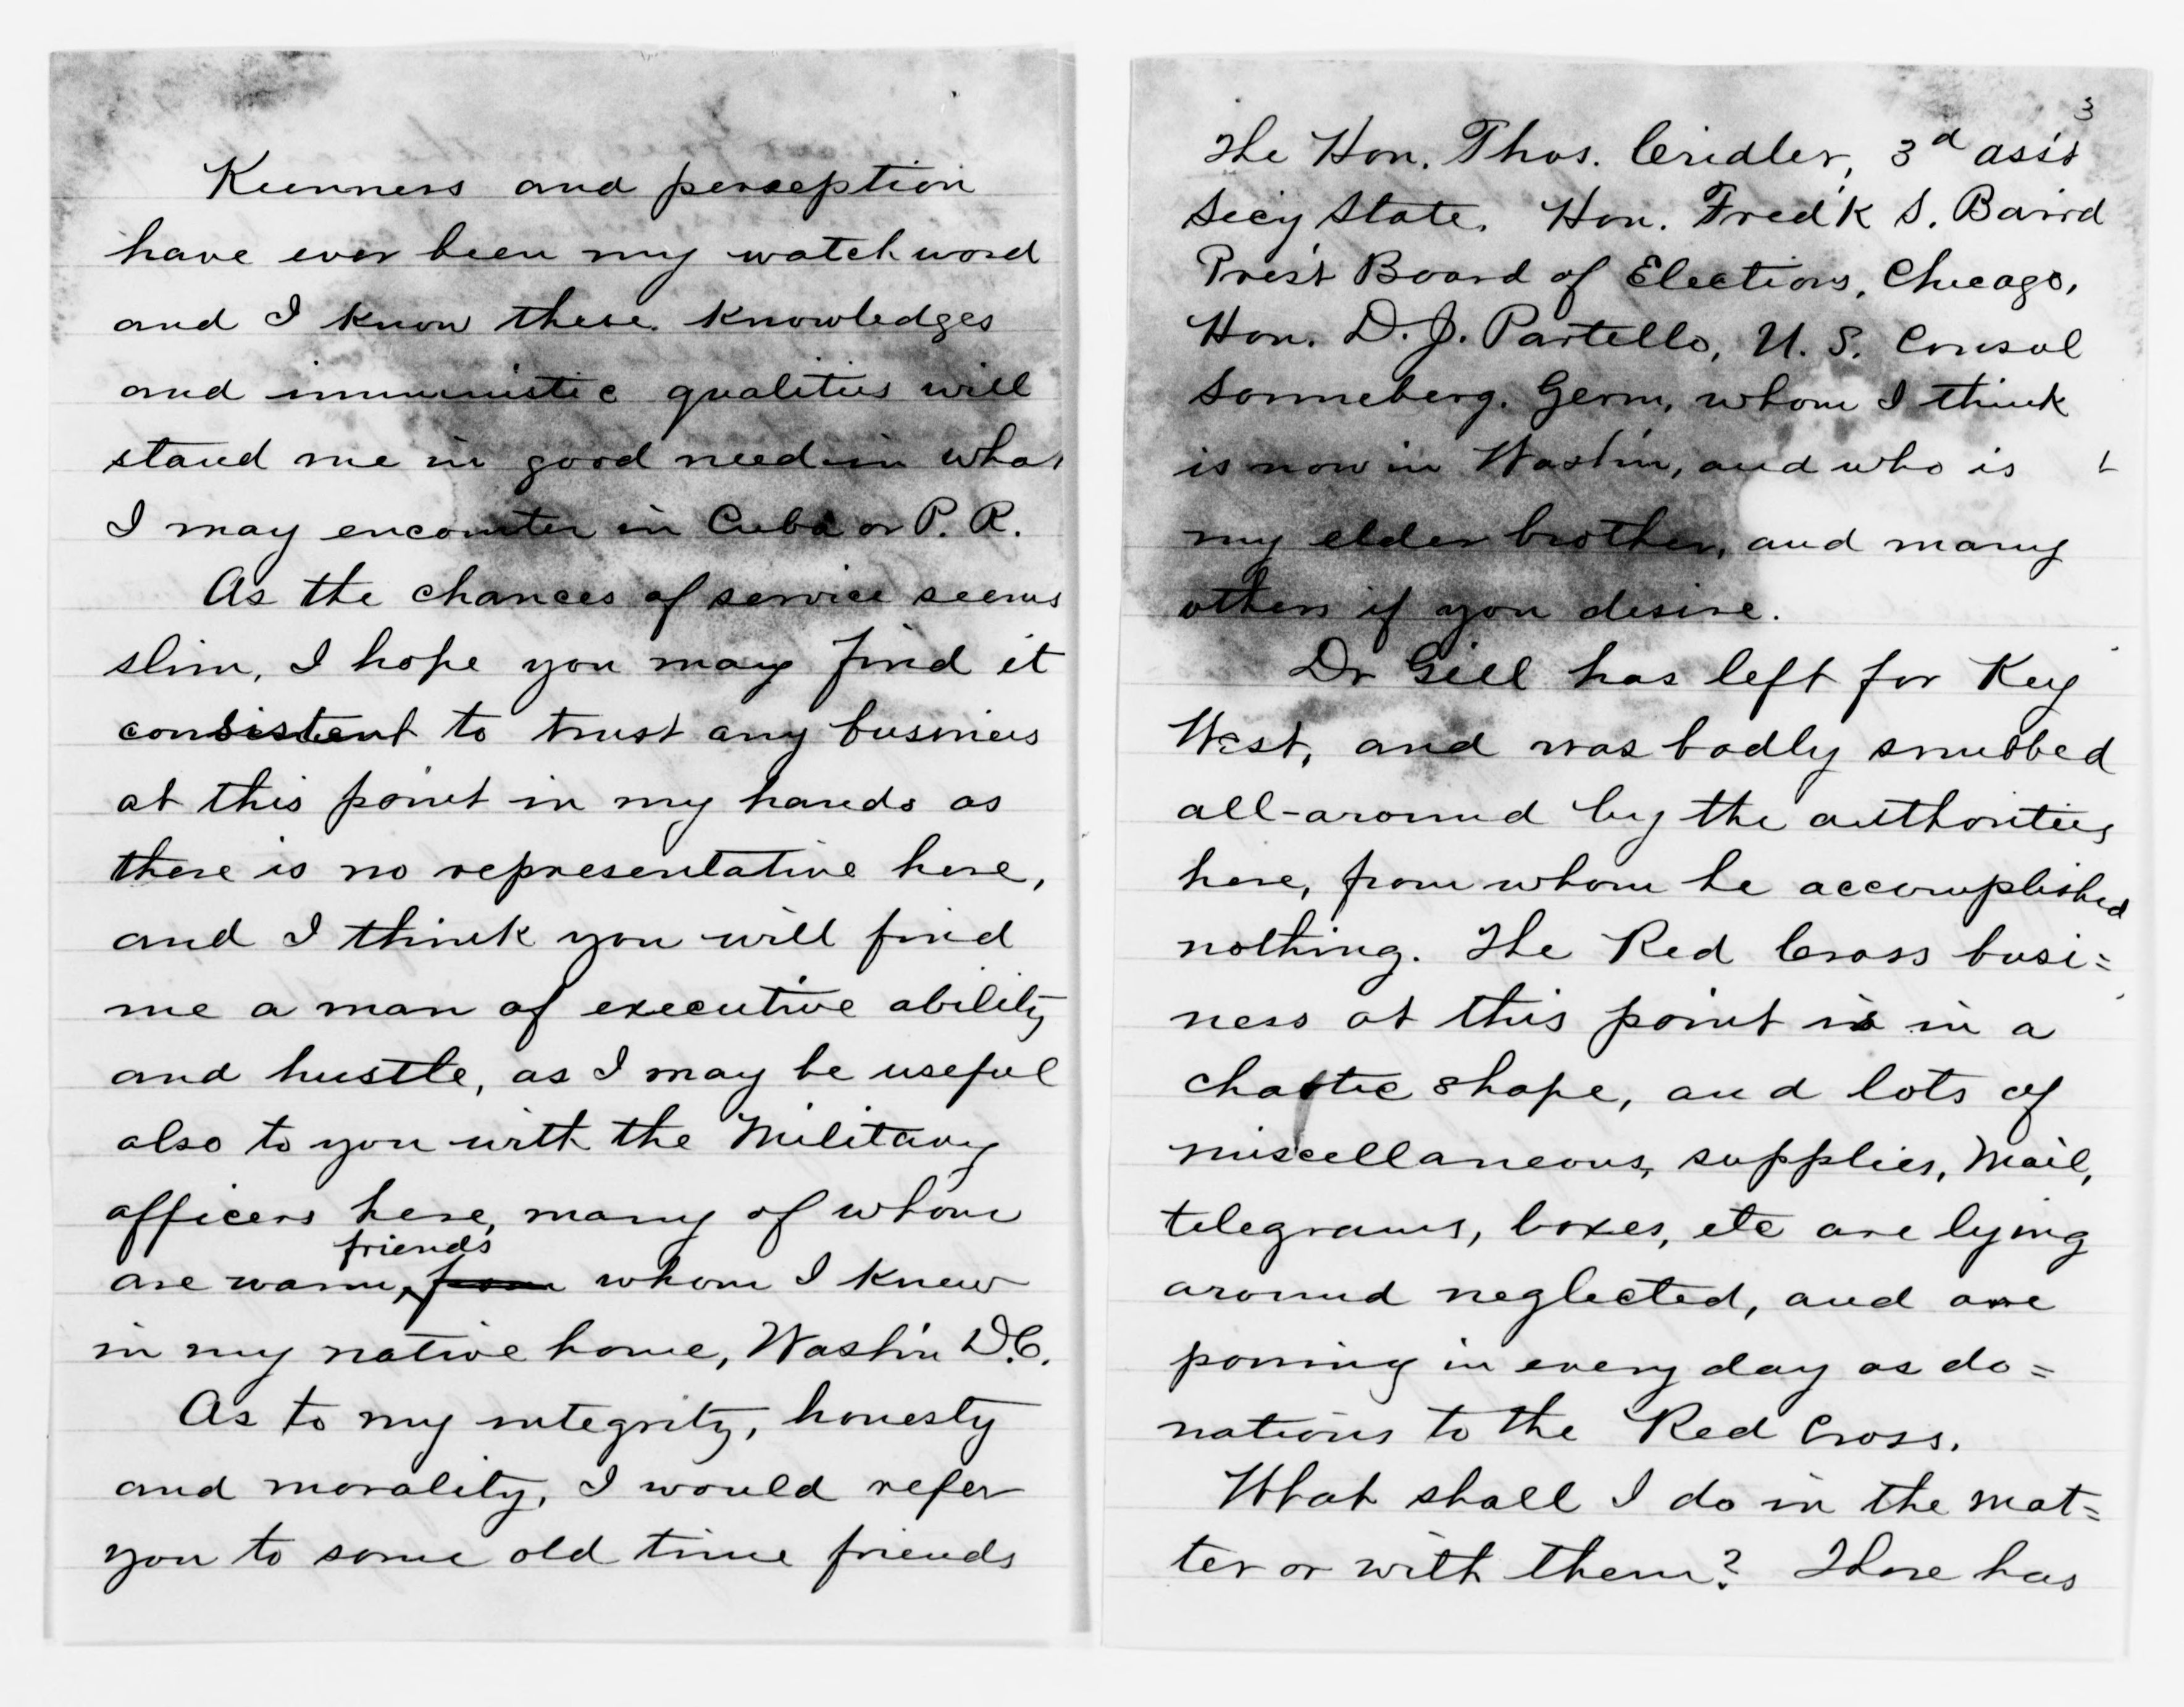 Keenness and perception
have ever been my watchword
and I know these knowledges
and immunistic qualities will
stand me in good need in what
I may encounter in Cuba or P. R.
As the chances of service seems
slim, I hope you may find it
consistent to trust any business
at this point in my hands as
there is no representative here,
and I think you will find
me a man of executive ability
and hustle, as I may be useful
also to you with the Military
officers here, many of whom
friends
are warm, from whom I knew
in my native home, Wash'n D.C.
As to my integrity, honesty
and morality, I would refer
you to some old time friends
3
The Hon. Thos. Cridler, 3d ass't
Secy State. Hon. Fred'k S. Baird
Pres't Board of Elections, Chicago,
Hon. D. J. Partello, U. S. Consul
Sonneberg. Germ, whom I think
is now in Wash'n, and who is
my elder brother, and many
others if you desire.
Dr Gill has left for Key
West, and was badly snubbed
all-around by the authorities
here, from whom he accomplished
nothing. The Red Cross busi=
ness at this point is in a
chaotic shape, and lots of
miscellaneous, supplies, Mail,
telegrams, boxes, etc are lying
around neglected, and are
pouring in every day as do=
nations to the Red Cross.
What shall I do in the mat=
ter or with them? There has